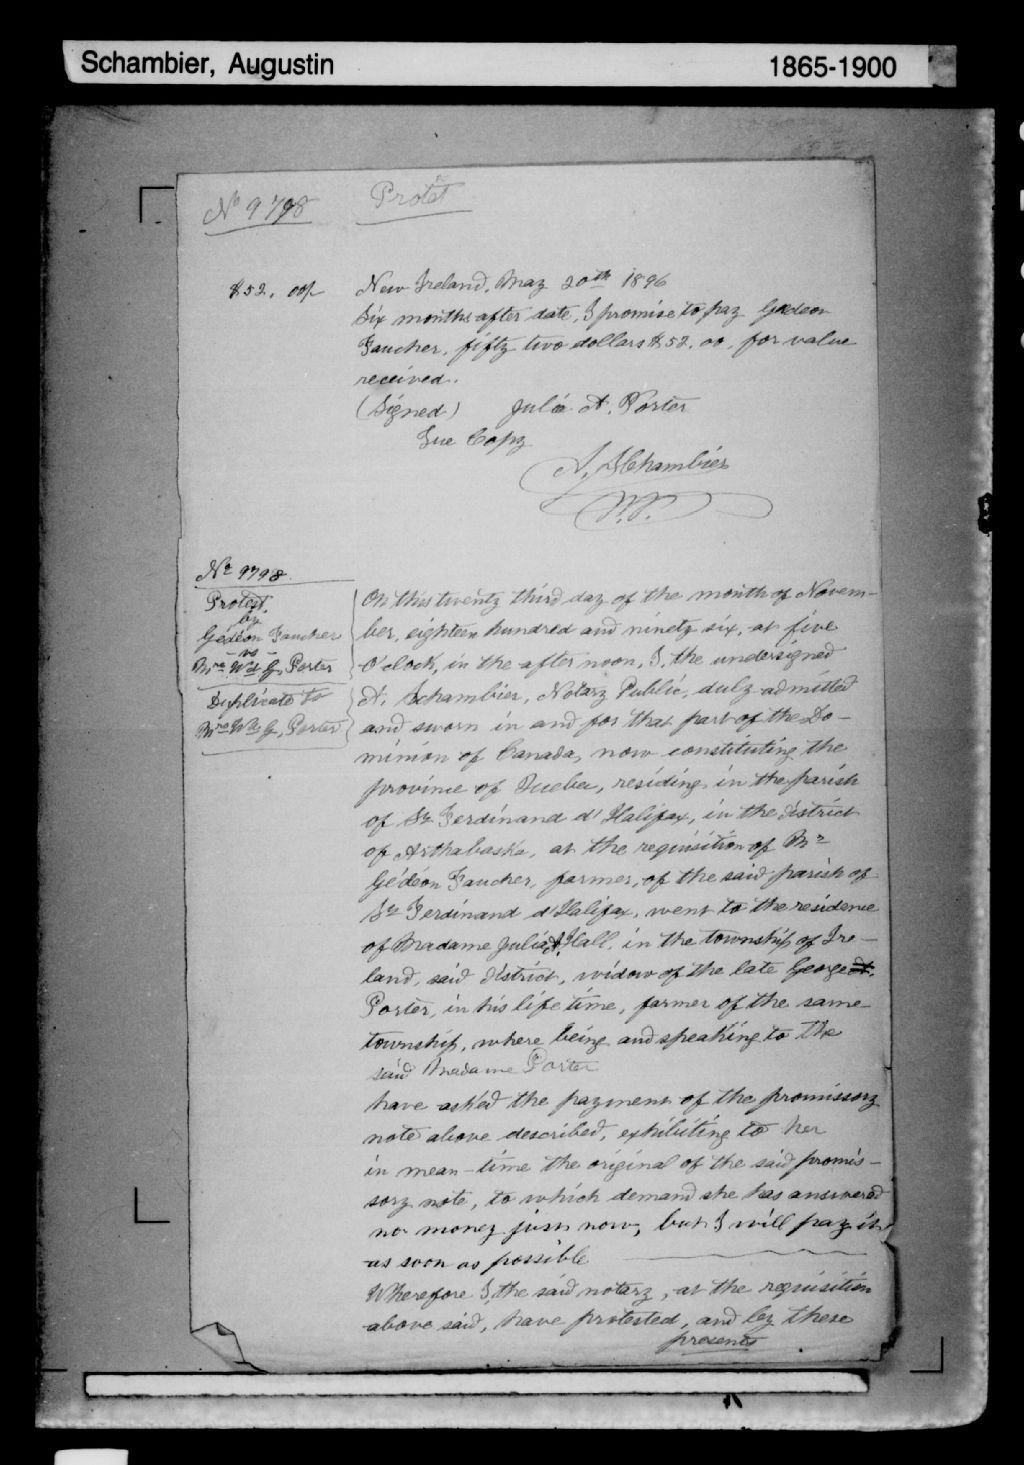 Schambier, Augustin 1865-1900
No 9798 Protêt
$52. 00/ New Ireland, May 20th 1896
Six months after date, I promise to pay Gedeon
Faucher, fifty two dollars $52. 00, for value
received.
(Signed) Julia A. Porter
True Copy
A. Schambier
N.P.
No 9798
Protest,
by
Gédéon Faucher
- vs -
Mrs Wd G, Porter
Duplicate to
Mrs Wd G, Porter
On this twenty third day of the month of Novem-
ber, eighteen hundred and ninety six, at five
O'clock, in the after noon, I, the undersigned
A. Schambier, Notary Public, duly admitted
and sworn in and for that part of the Do-
minion of Canada, now constituting the
province of Quebec, residing in the parish
of St Ferdinand d'Halifax, in the district
of Arthabaska, at the requisition of Mr
Gédéon Faucher, farmer, of the said parish of
St Ferdinand d'Halifax, went to the residence
of Madame Julia A. Hall, in the township of Ire-
land, said district, widow of the late George
Porter, in his life time, farmer of the same
township, where being and speaking to the
said Madame Porter
have asked the payment of the promissory
note above described, exhibiting to her
in mean-time the original of the said promis-
sory note, to which demand she has answered
no money just now, but I will pay it
as soon as possible
Wherefore I, the said notary, at the requisition
above said, have protested, and by these
presents